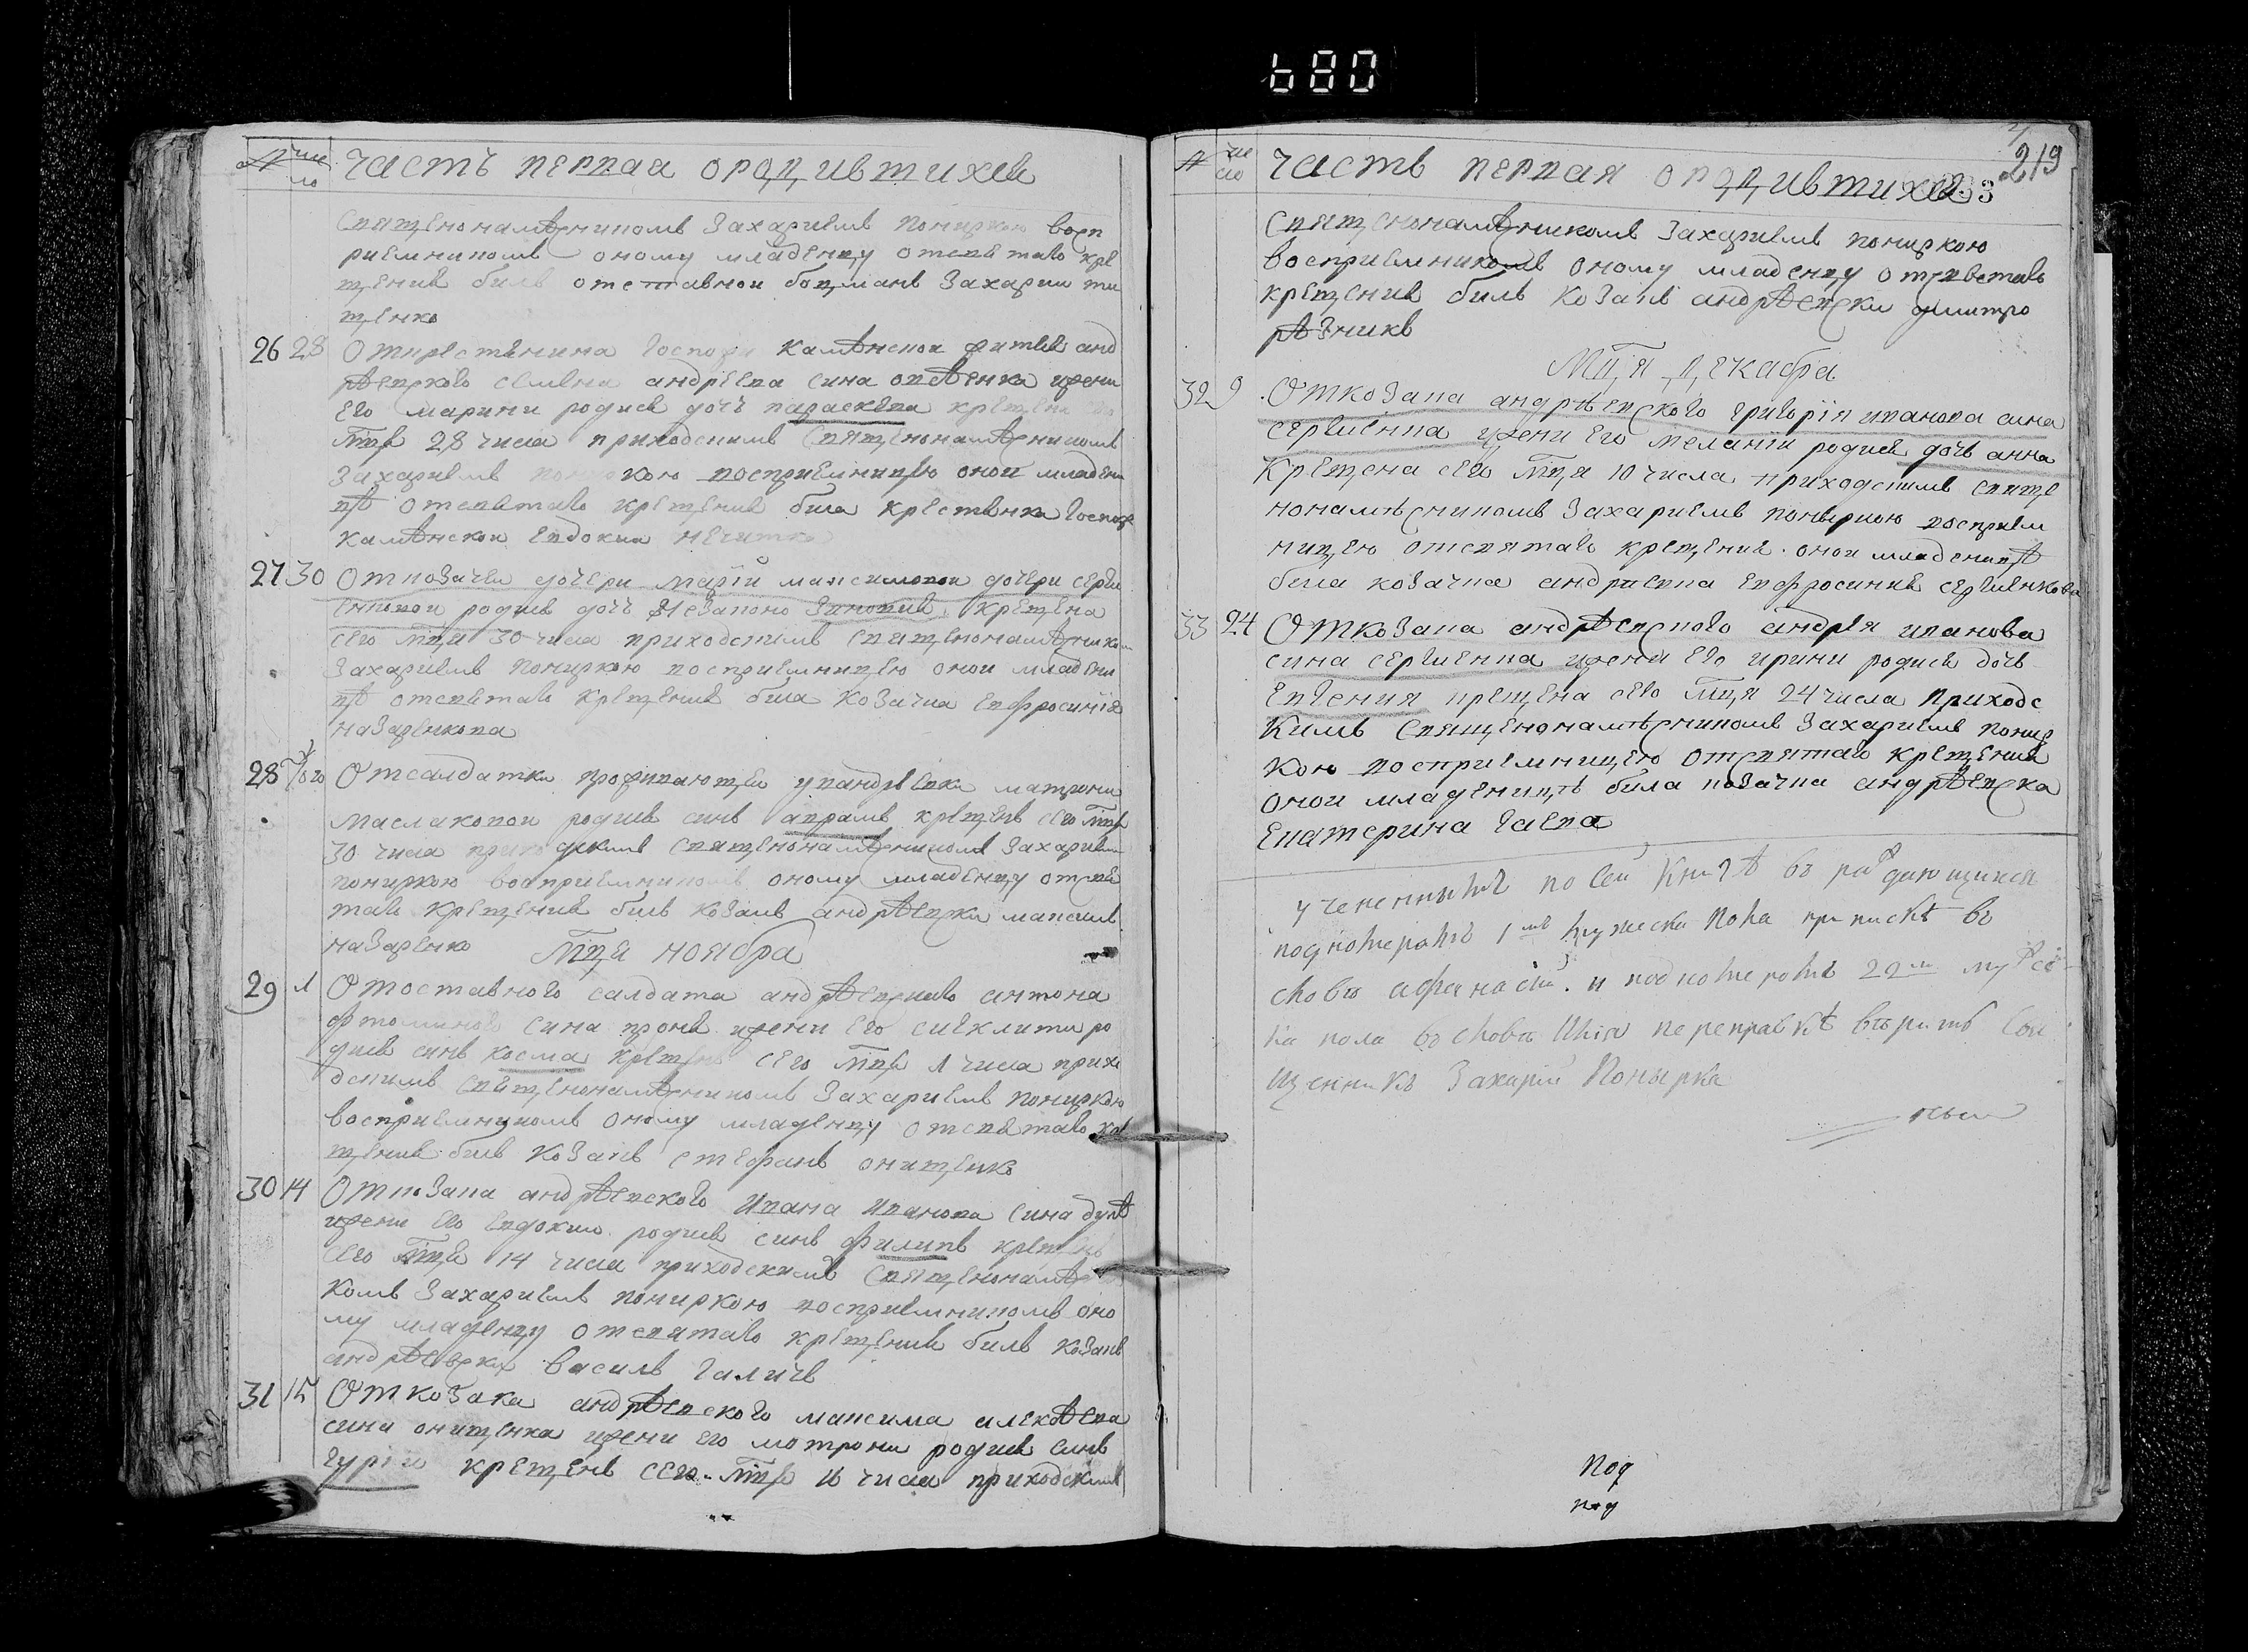 680
№ число
Часть первая ородившихсв
Священонамѣсникомъ Захариемъ Пониркою восп
риемникомъ оному младенцу отсвѣтаго кре
щения билъ отставнои боцманъ Захарии ти
щенко
26 28 Открестянина Госпожи Камѣнскои жителя анд
рѣевского семена андреева сина ... жени
его марини родися дочь параскева крещена сего
мца 28 числа приходскимъ Священонамѣсникомъ
Захариемъ Пониркою восприемницею онои младени
цѣ отсвѣтаго крещения била крестянка Госпожи
Камѣнскои Евдокия
27 30 Отковачки дочери марїи максимовои дочери серги
енковои родися дочь незаконо Зиновия крещена
сего мца 30 числа приходскимъ священонамѣсником
Захариемъ Пониркою восприемницею онои младени
цѣ отсвѣтаго крещения била козачка ефросинїя
назаренкова
28 того Отсалдатки проживающеи уandрѣевки матрони
маслаковои родися синъ авраамъ крещенъ сего мца
30 числа приходскимъ священонамѣсникомъ Захариемъ
пониркою восприемникомъ оному младенцу отсвѣ
таго крещения билъ козакъ андрѣевски максимъ
назаренко
Мця ноября
29 1 Отоставного салдата андрѣевского антона
сина жени его родися
синъ косма крещенъ сего мця 1 числа прихо
дскимъ священонамѣсникомъ Захариемъ пониркою
восприемникомъ оному младенцу отсвѣтаго кре
щения билъ козакъ стефанъ онищенко
30 14 Откозака андрѣевского Ивана Иванова сина
жени его Евдокии родися синъ филипъ крещенъ
сего мця 14 числа приходскимъ священонамѣсни
комъ Захариемъ пониркою восприемникомъ оно
му младенцу отсвятаго крещения билъ козакъ
андрѣевски василь галичъ
31 15 Откозака андрѣевского максима алексѣева
сина онищенка жени его мотрони родися синъ
гурїи крещенъ сего мця 16 числа приходскимъ
№ число
Часть первая ородившихся
219
Священонамѣсникомъ Захариемъ пониркою
восприемникомъ оному младенцу отсвѣтаго
крещения билъ козакъ андрѣевски димитро
рѣзникъ
Мця декабра
32 9 Откозака андрѣевского григорїя иванова сина
сергиенка жени его меланїи родися дочь анна
крещена сего мця 10 числа приходскимъ свяще
нонамѣсникомъ Захариемъ поныркою восприем
ницею отсвятаго крещения онои младеницѣ
била козачка андриевска ефросиния сергиенкова
33 24 Откозака андрѣевского андрея иванова
сина сергиенка жени его ирини родися дочь
евгения крещена сего мця 24 числа приходс
кимъ священонамѣсникомъ Захариемъ понир
кою восприемницею отсвятаго крещения
онои младеницѣ била козачка андрѣевска
Екатерина гаева
учененныхъ по сей книгѣ въ раждающихся
подномерамъ 1мъ мужеска пола припискѣ въ
словѣ афанасїй и подномеромъ 22м мужес
ка пола въ словѣ переправкѣ вѣритъ Свя
щенникъ Захарїй Понырка
Под
под